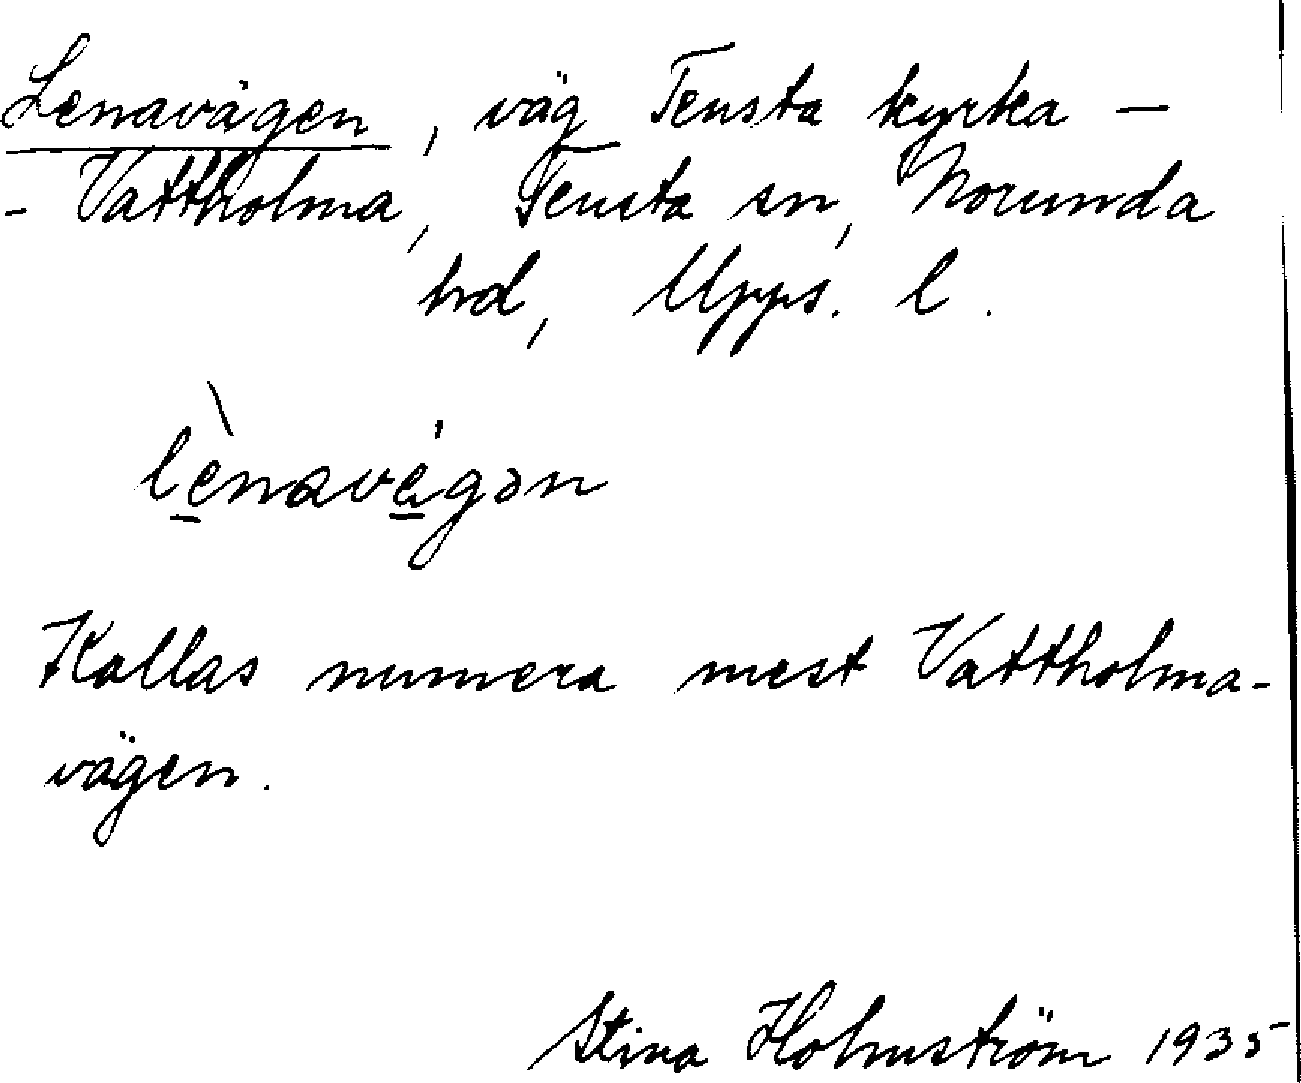 Lenavägen, väg Tensta kyrka –
- Vattholma, Tensta sn, Norunda
hd, Upps. l.
lènavégən
Kallas numera mest Vattholma-
vägen.
Stina Holmström 1935